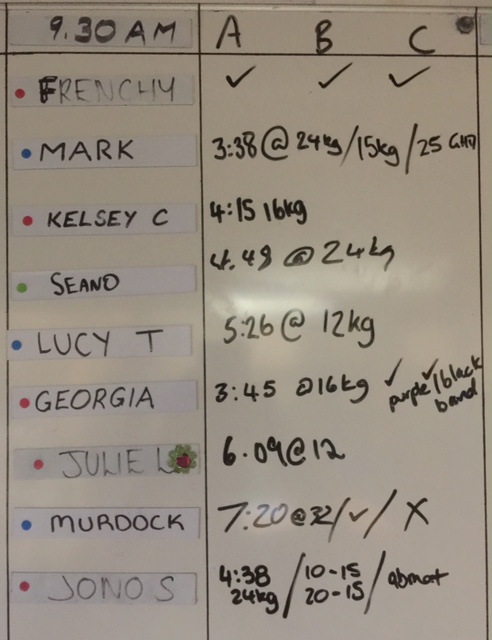 9.30 AM A B C
FRENCHY ✓ ✓ ✓
MARK 3:38 @ 24kg/15kg/25 GHD
KELSEY C 4:15 16kg
SEANO 4.48 @ 24kg
LUCY T 5:26 @ 12kg
GEORGIA 3:45 @16kg ✓ purple ✓/black band
JULIE L 6.09@12
MURDOCK 7:20@32/✓/X
JONO S 4:38 24kg / 10-15 20-15 / abmat